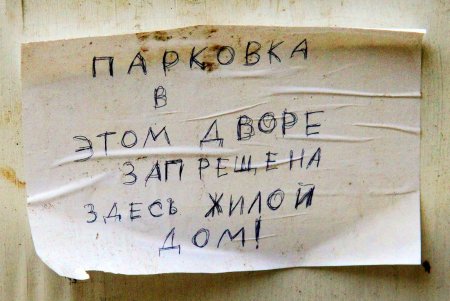 ПАРКОВКА
В
ЭТОМ ДВОРЕ
ЗАПРЕЩЕНА
ЗДЕСЬ ЖИЛОЙ
ДОМ!